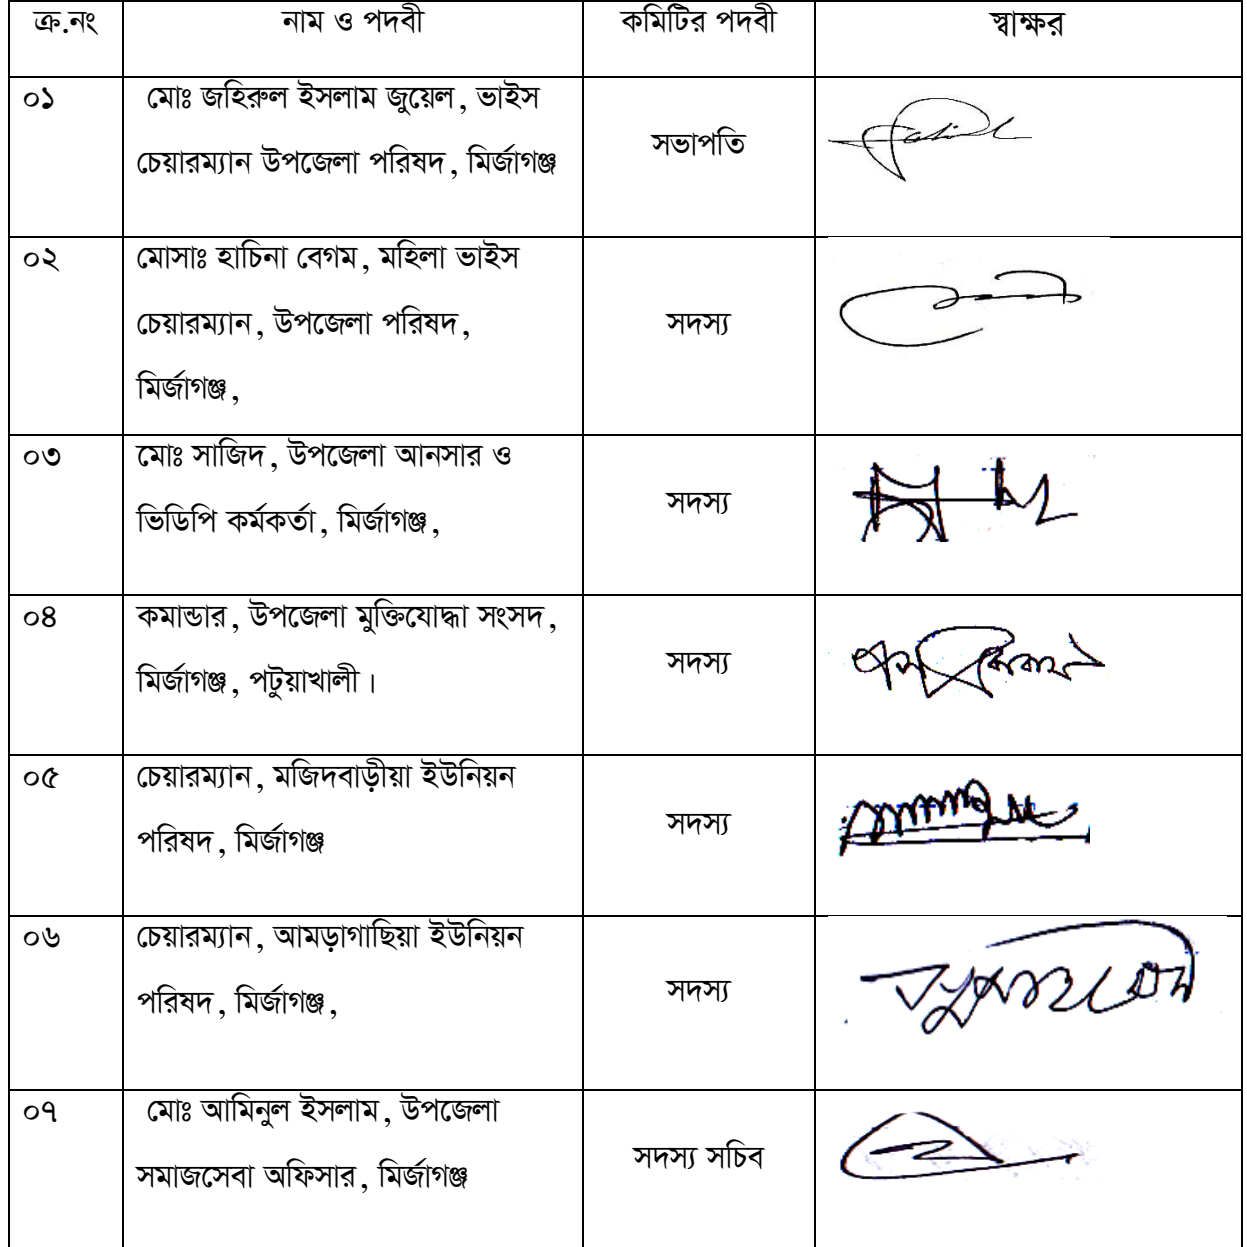 ক্র.নং নাম ও পদবী কমিটির পদবী স্বাক্ষর
০১ মোঃ জহিরুল ইসলাম জুয়েল, ভাইস
চেয়ারম্যান উপজেলা পরিষদ, মির্জাগঞ্জ সভাপতি
০২ মোসাঃ হাচিনা বেগম, মহিলা ভাইস
চেয়ারম্যান, উপজেলা পরিষদ, সদস্য
মির্জাগঞ্জ,
০৩ মোঃ সাজিদ, উপজেলা আনসার ও
ভিডিপি কর্মকর্তা, মির্জাগঞ্জ, সদস্য
০৪ কমান্ডার, উপজেলা মুক্তিযোদ্ধা সংসদ,
মির্জাগঞ্জ, পটুয়াখালী। সদস্য
০৫ চেয়ারম্যান, মজিদবাড়ীয়া ইউনিয়ন
পরিষদ, মির্জাগঞ্জ সদস্য
০৬ চেয়ারম্যান, আমড়াগাছিয়া ইউনিয়ন
পরিষদ, মির্জাগঞ্জ, সদস্য
০৭ মোঃ আমিনুল ইসলাম, উপজেলা
সমাজসেবা অফিসার, মির্জাগঞ্জ সদস্য সচিব